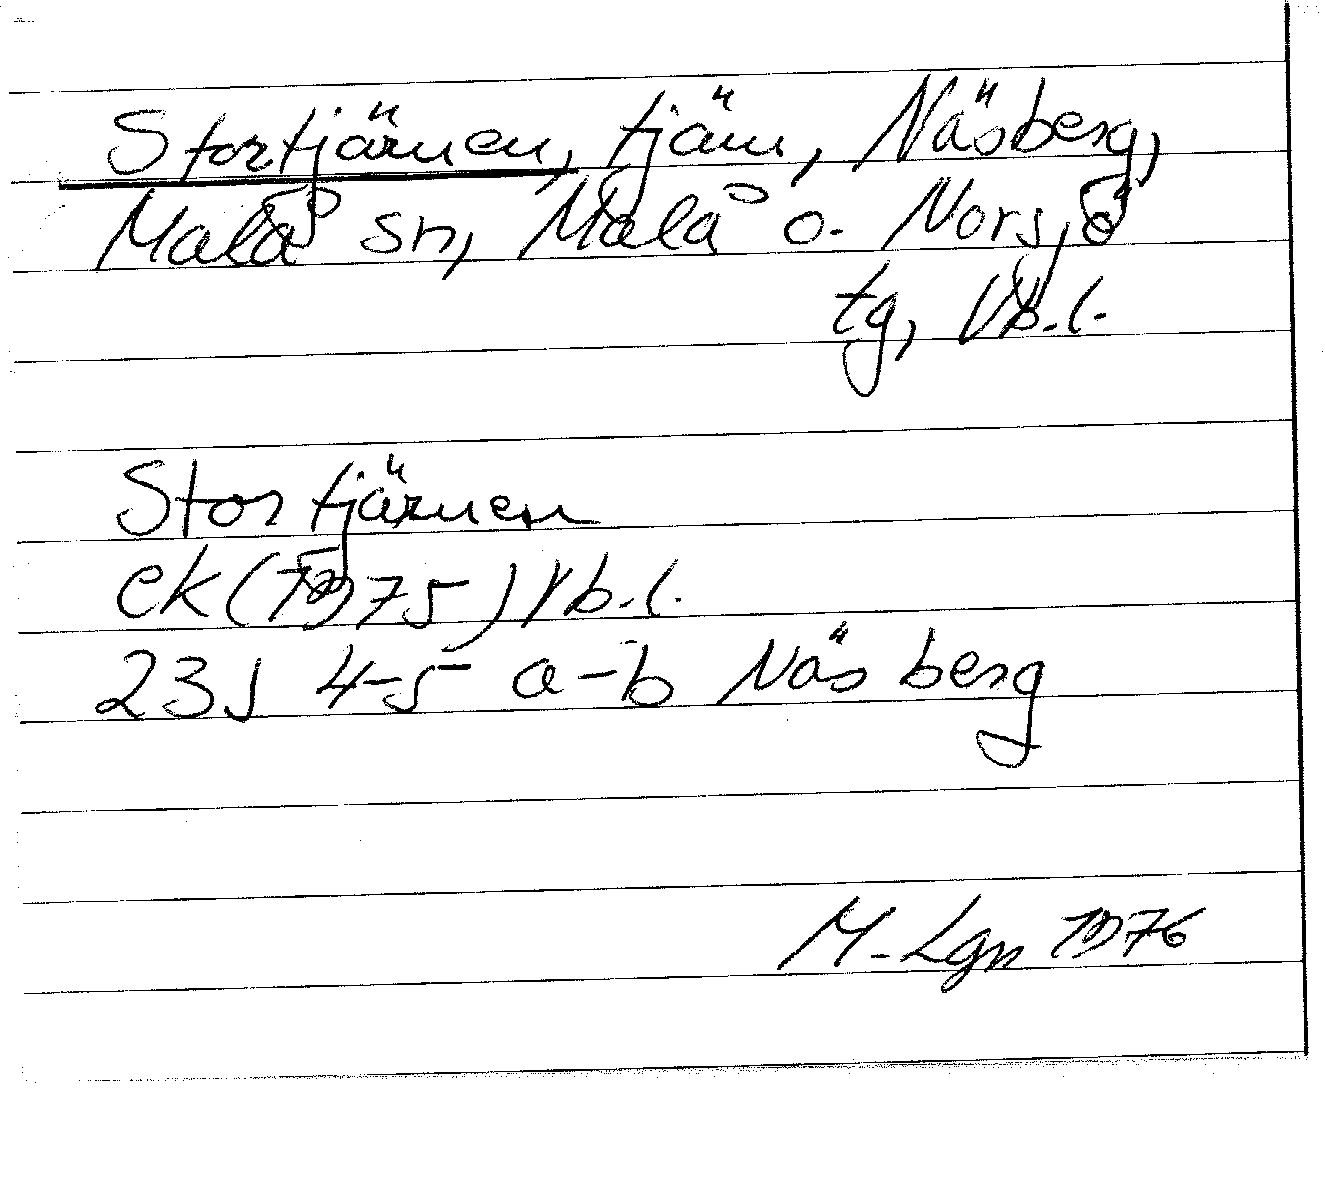 Stortjärnen, tjärn, Näsberg,
Malå sn, Malå o. Norsjö
tg, Vb.l.
Stortjärnen
ek (1975) Vb.l.
23J 4-5 a-b Näsberg
M-Lgn 1976